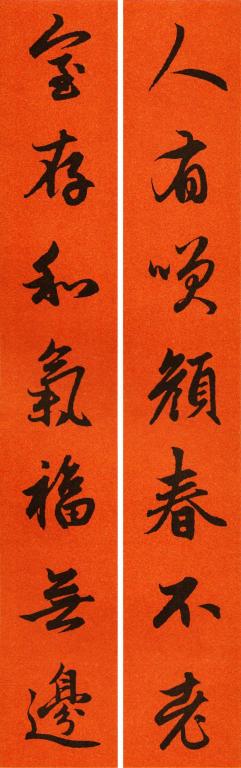 人有咲顔春不老
室存和氣福無邊